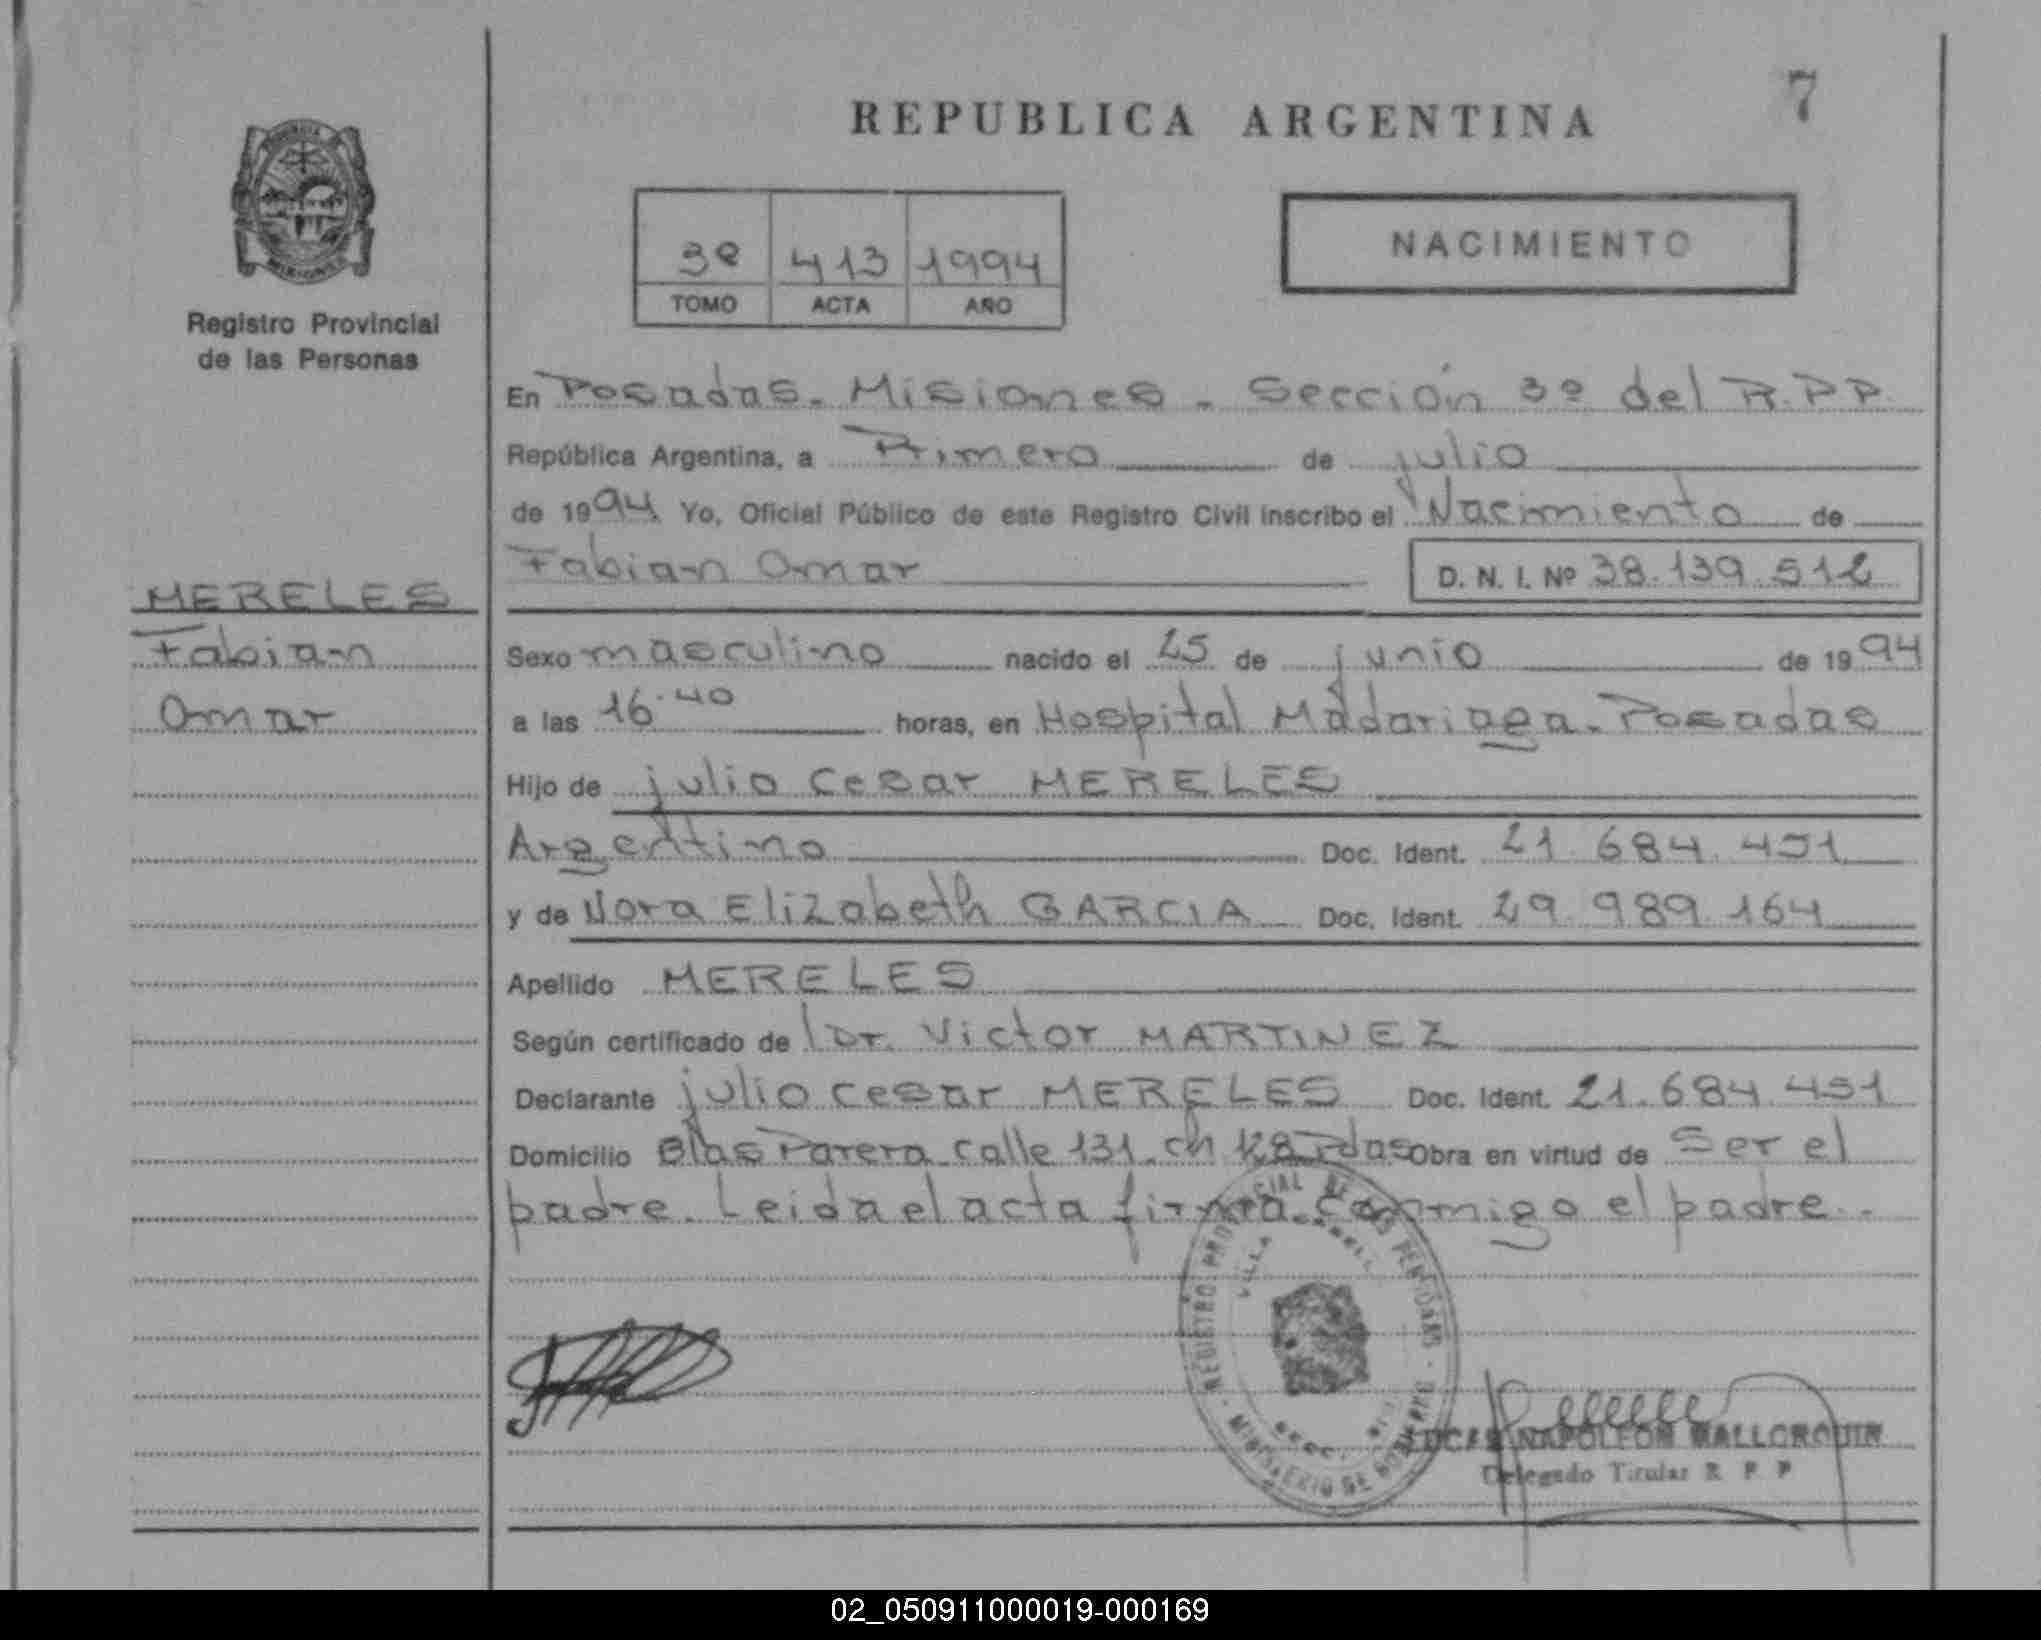 REPUBLICA ARGENTINA
7
3º 413 1994
TOMO ACTA AÑO
NACIMIENTO
Registro Provincial
de las Personas
En Posadas. Misiones. Sección 3º del R.P.P.
República Argentina, a Primero de julio
de 1994. Yo, Oficial Público de este Registro Civil inscribo el Nacimiento de
Fabian Omar D. N. I. Nº 38.139.512
MERELES
Fabian
Omar
Sexo masculino nacido el 25 de junio de 1994
a las 16.40 horas, en Hospital Madariaga. Posadas
Hijo de julio Cesar MERELES
Argentino Doc. Ident. 21.684.451
y de Nora Elizabeth GARCIA Doc. Ident. 29.989.164
Apellido MERELES
Según certificado de Dr. Victor MARTINEZ
Declarante julio cesar MERELES Doc. Ident. 21.684.451
Domicilio Blas Parera calle 131. ch 128 Pdas Obra en virtud de Ser el
padre. Leida el acta firma conmigo el padre.
REGISTRO PROVINCIAL DE LAS PERSONAS
VILLA
MINISTERIO DE GOBIERNO
LUCAS NAPOLEON MALLORQUIN
Delegado Titular R P P
02_050911000019-000169